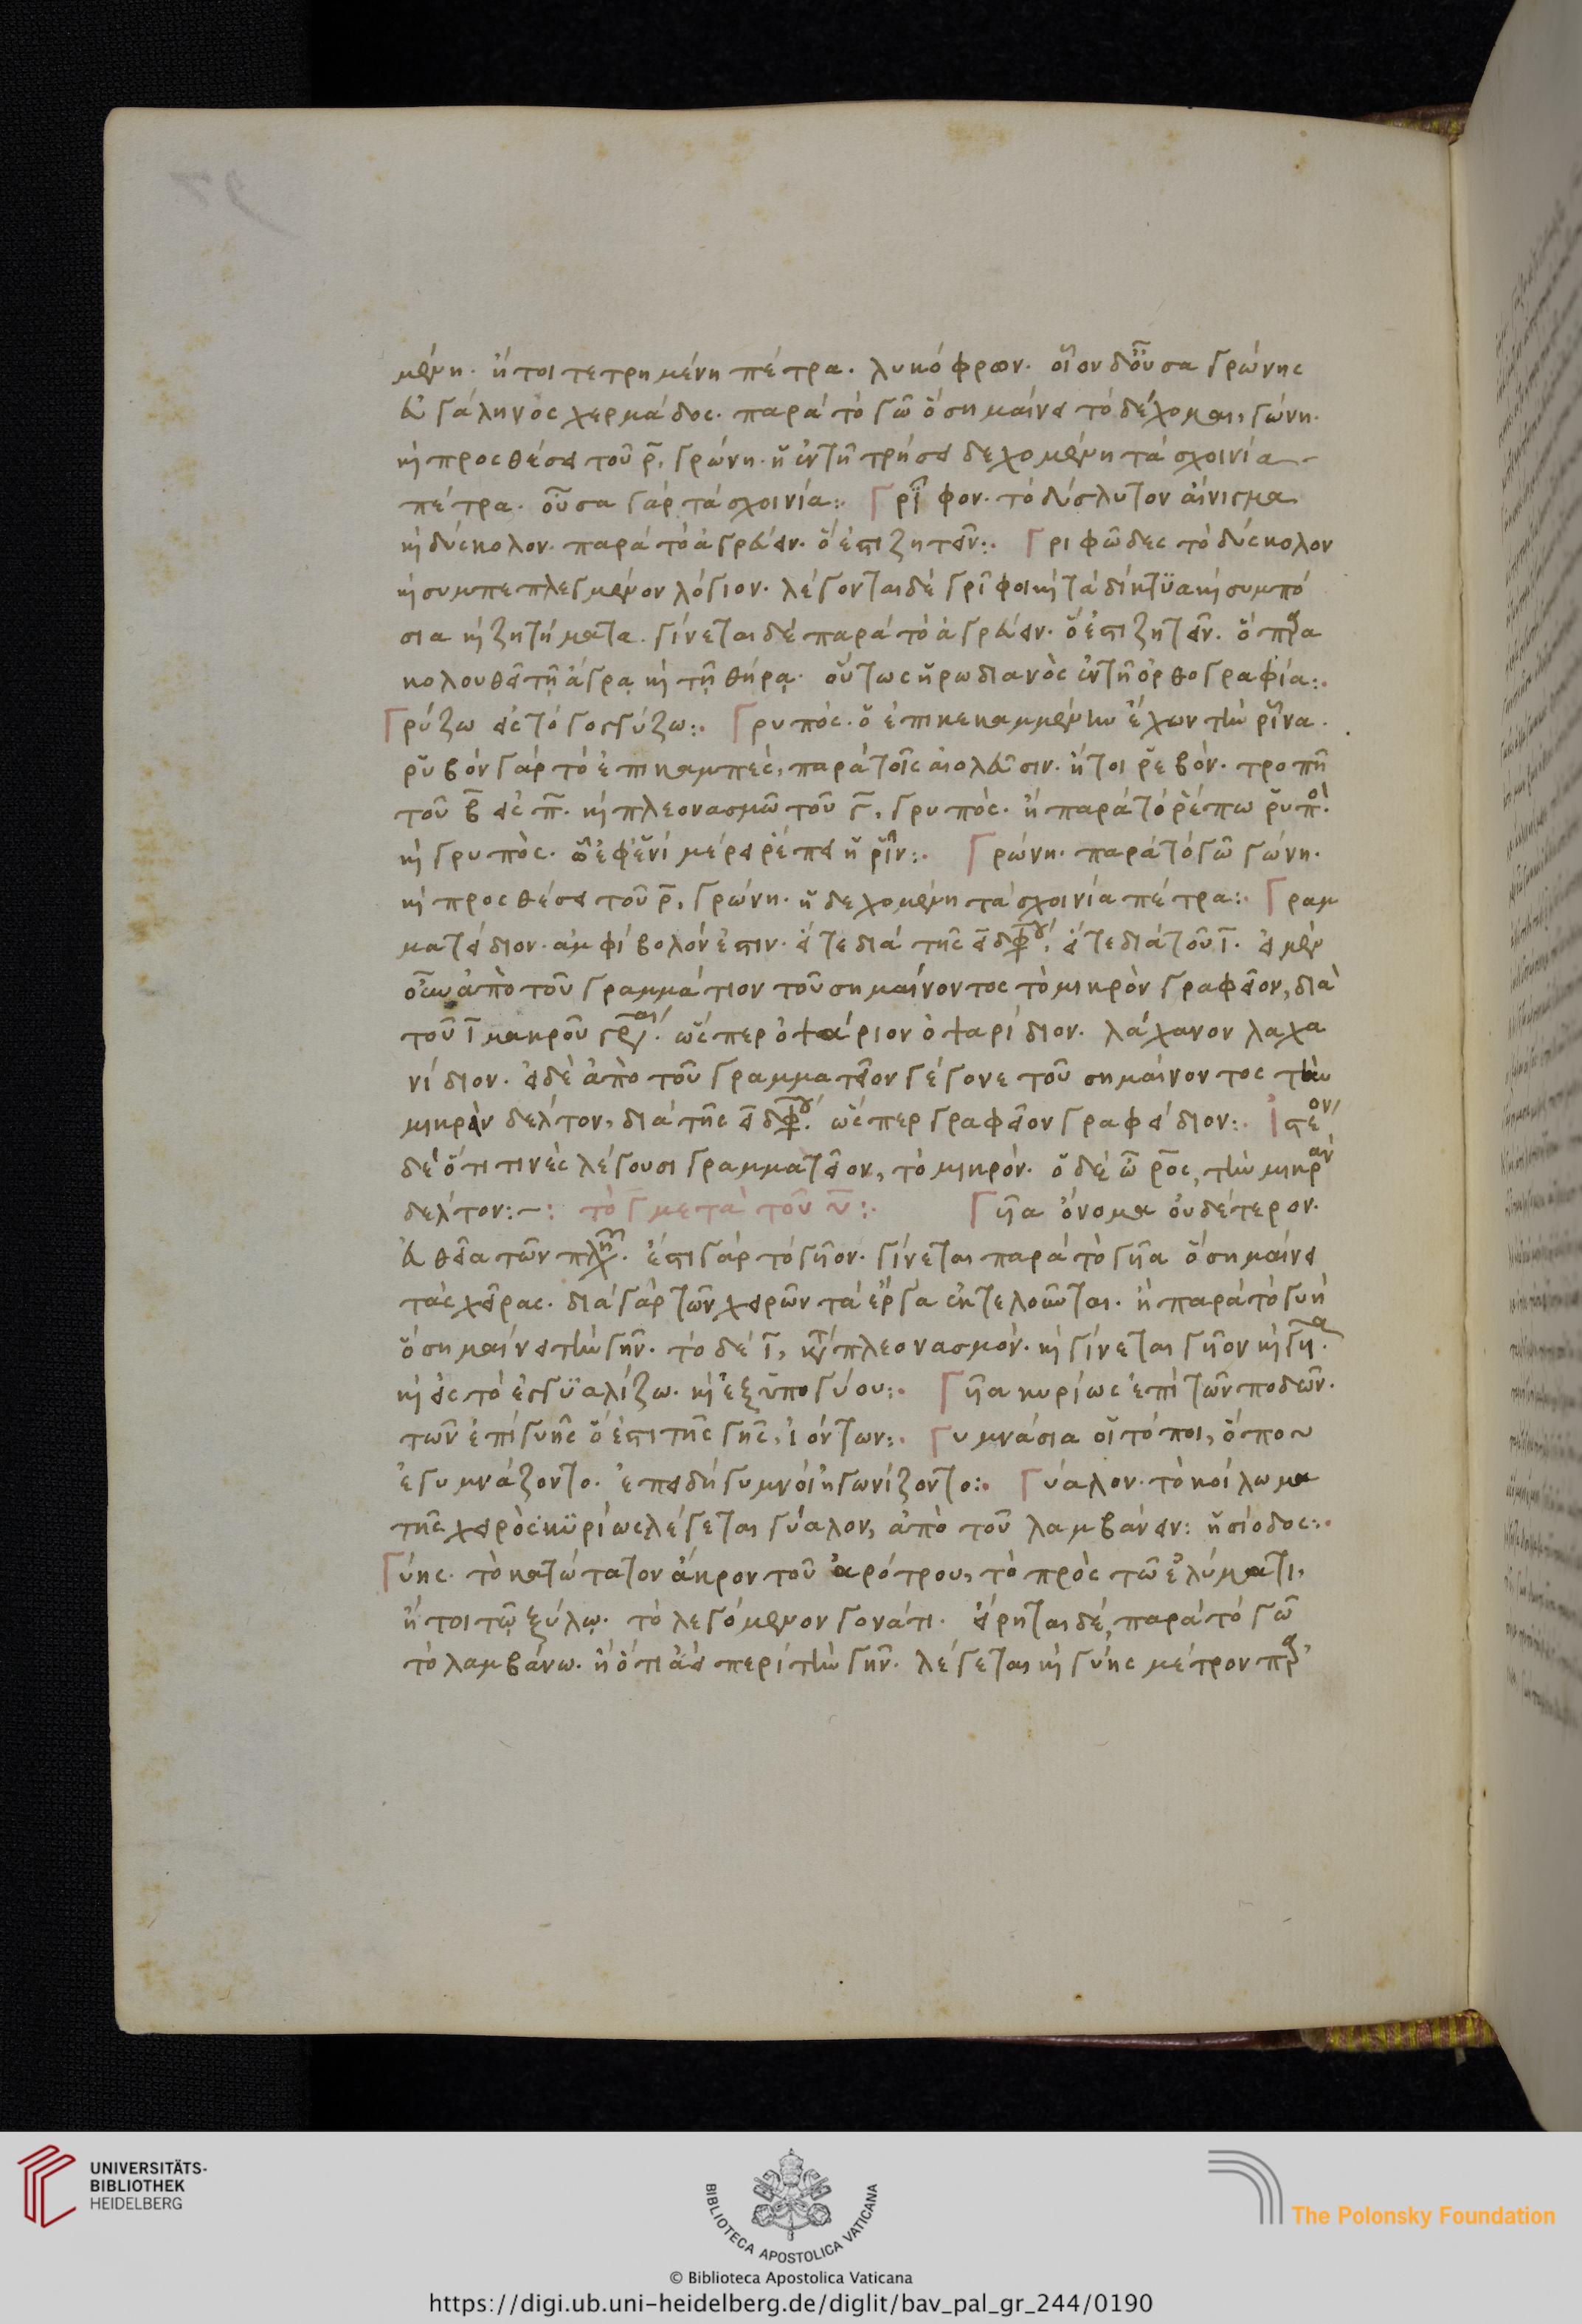 μένη· ἤτοι τετρημένη πέτρα· λυκόφρων· οἷον δοῦσα γρώνης
εὐγάληνος χερμάδος· παρὰ τὸ γῶ ὃ σημαίνει τὸ δέχομαι, γώνη·
καὶ προσθέσει τοῦ ρ̄, γρώνη· ἡ ἐν τῇ τρήσει δεχομένη τὰ σχοινία
πέτρα· οὖσα γὰρ τὰ σχοινία:· Γρῖφον· τὸ δύσλυτον αἴνιγμα
καὶ δύσκολον· παρὰ τὸ ἀγρεύειν· ὅ ἐστι ζητεῖν:· Γριφῶδες τὸ δύσκολον
καὶ συμπεπλεγμένον λόγιον· λέγονται δὲ γρῖφοι καὶ τὰ δίκτϋα καὶ συμπό
σια καὶ ζητήματα· γίνεται δὲ παρὰ τὸ ἀγρεύειν· ὅ ἐστι ζητεῖν· ὃ παρα
κολουθεῖ τῇ ἄγρᾳ καὶ τῇ θήρᾳ· οὕτως ἡρωδιανὸς ἐν τῇ ὀρθογραφία:·
Γρύζω εἰς τὸ γογγύζω:· Γρυπός· ὁ ἐπικεκαμμένην ἔχων τὴν ῥῖνα·
ῥυβὸν γὰρ τὸ ἐπικαμπές, παρὰ τοῖς αἰολεῦσιν· ἤτοι ῥεβόν· τροπῇ
τοῦ β̄ εἰς π̄· καὶ πλεονασμῶ τοῦ γ̄, γρυπός· ἢ παρὰ τὸ ῥέπω ῥυπὸ·
καὶ γρυπὸς· ᾧ ἐφ' ἑνὶ μέρει ῥέπει ἡ ῥίν:· Γρώνη· παρὰ τὸ γῶ γώνη·
καὶ προσθέσει τοῦ ρ̄, γρώνη· ἡ δεχομένη τὰ σχοινία πέτρα:· Γραμ
ματείδιον· ἀμφίβολόν ἐστιν· εἴτε διὰ τῆς ει διφθόγγου, εἴτε διὰ τοῦ ῑ· εἰ μὲν
οὖν ἀπὸ τοῦ γραμμάτιον τοῦ σημαίνοντος τὸ μικρὸν γραφεῖον, διὰ
τοῦ ῑ μακροῦ γράφεται· ὥσπερ ὀψάριον ὀψαρίδιον· λάχανον λαχα
νίδιον· εἰ δὲ ἀπὸ τοῦ γραμματεῖον γέγονε τοῦ σημαίνοντος τὴν
μικρὰν δέλτον, διὰ τῆς ει διφθόγγου· ὥσπερ γραφεῖον γραφείδιον:· Ἰστέον
δὲ ὅτι τινὲς λέγουσι γραμματεῖον, τὸ μικρόν· ὁ δὲ ὦρος, τὴν μικρὰν
δέλτον:-: τὸ γ̄ μετὰ τοῦ ῡ:· Γυῖα ὄνομα οὐδέτερον·
εὐθεῖα τῶν πληθυντικῶν· ἔστι γὰρ τὸ γυῖον· γίνεται παρὰ τὸ γυῖα ὃ σημαίνει
τὰς χεῖρας· διὰ γὰρ τῶν χειρῶν τὰ ἔργα ἐκτελοῦνται· ἢ παρὰ τὸ γυὴ
ὃ σημαίνει τὴν γῆν· τὸ δὲ ῑ, κατὰ πλεονασμόν· καὶ γίνεται γυῖον καὶ γυῖα·
καὶ εἰς τὸ ἐγγϋαλίζω· καὶ ἐξ ὑπογύου:· Γυῖα κυρίως ἐπὶ τῶν ποδῶν·
τῶν ἐπὶ γυῆς ὅ ἐστι τῆς γῆς, ἰόντων:· Γυμνάσια οἱ τόποι, ὅπου
ἐγυμνάζοντο· ἐπειδὴ γυμνοὶ ἠγωνίζοντο:· Γύαλον· τὸ κοίλωμα
τῆς χειρὸς κϋρίως λέγεται γύαλον, ἀπὸ τοῦ λαμβάνειν: ἡσίοδος:·
Γύης· τὸ κατώτατον ἄκρον τοῦ ἀρότρου, τὸ πρὸς τῶ ἐλύματι,
ἤτοι τῷ ξύλῳ· τὸ λεγόμενον γονάτι· εἴρηται δὲ, παρὰ τὸ γῶ
τὸ λαμβάνω· ἢ ὅτι ἀεὶ περὶ τὴν γῆν· λέγεται καὶ γύης μέτρον παρ'
UNIVERSITÄTS-
BIBLIOTHEK
HEIDELBERG
BIBLIOTECA APOSTOLICA VATICANA
The Polonsky Foundation
© Biblioteca Apostolica Vaticana
https://digi.ub.uni-heidelberg.de/diglit/bav_pal_gr_244/0190